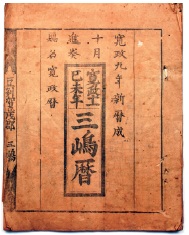 寛政九年新暦成
十月進奏
寛政十一
己未年
三嶋暦
賜名寛政暦